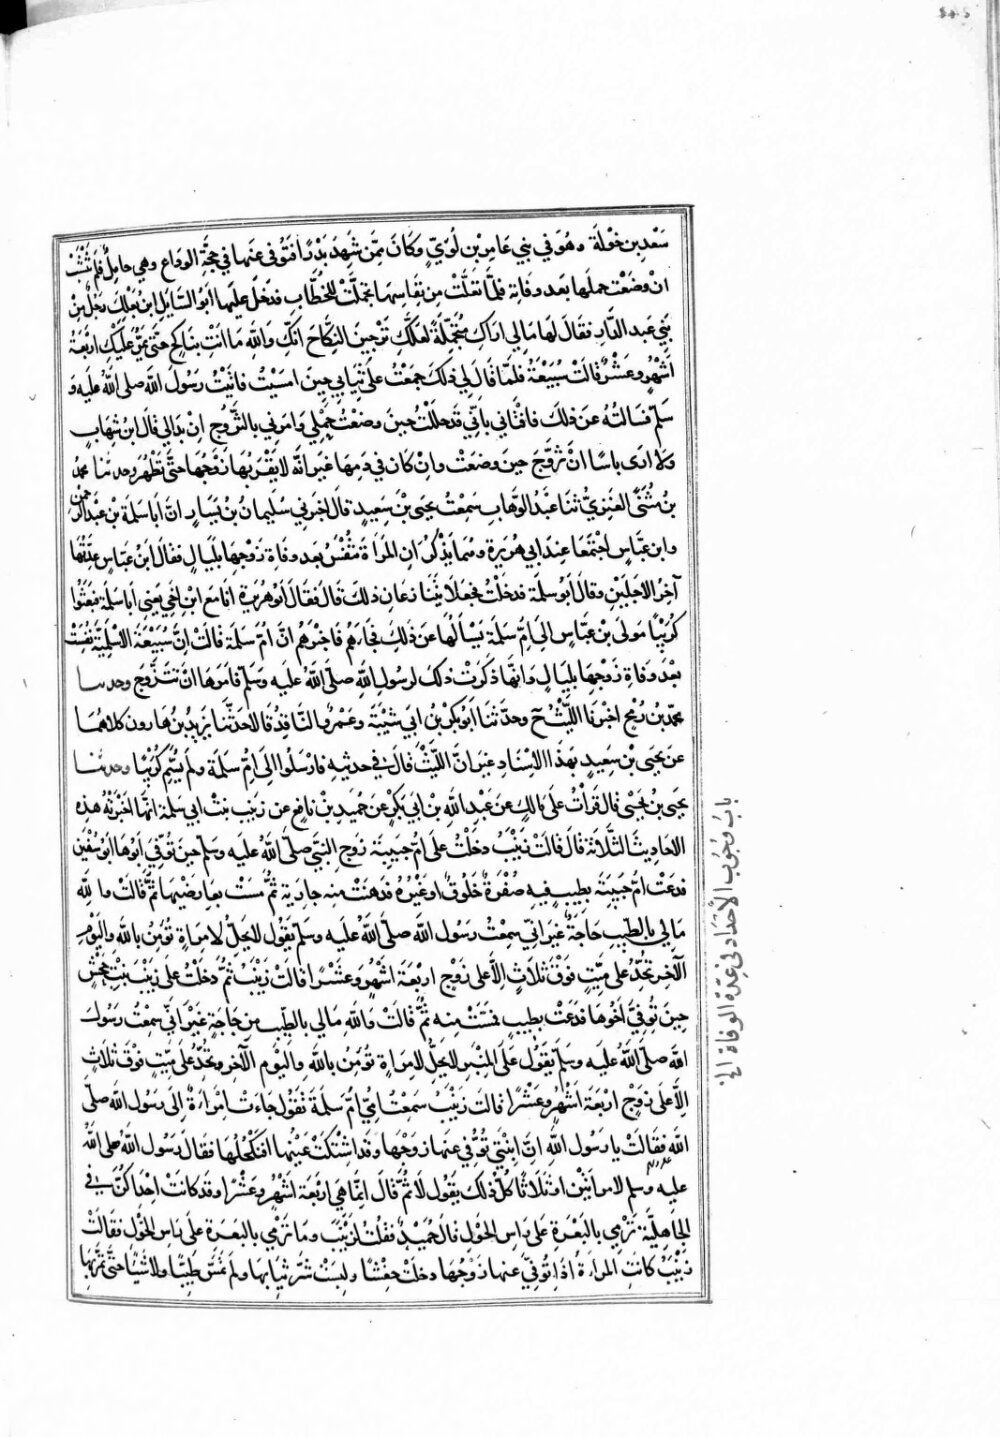 سَعْدِ بن خَوْلَة وهُوَ في بَنِي عَامِر بْن لُوَيّ وَكَانَ مِمَّن شَهِدَ بَدْرًا فَتُوُفّى عَنها في حَجَّةِ الوَدَاع وهي حامِلٌ فلم تَنْشَبْ
انْ وضَعَتْ حملها بَعد وفاته فلمّا تَعَلَّتْ مِن نِفَاسِها تجمّلَتْ للخُطّابِ فدخل عليها أَبُو السَّنابِل ابن بَعْكَك رَجُلٌ مِن
بَنِي عبد الدَّار فقَالَ لهَا مَا لِي اراكِ مُتجَمِّلَةً لَعَلَّكِ تَرْجِينَ النِّكَاحَ انَّكِ واللهِ مَا انْتِ بنَاكِح حتّى تَمُرَّ عَلَيْكِ اربَعَةُ
أَشْهُرٍ وعَشْرٌ قالَتْ سُبَيْعَةُ فلمّا قَالَ لِي ذلِكَ جمَعْتُ عَلَيَّ ثِيَابِي حِينَ امسَيْتُ فاتَيْتُ رَسُولَ اللهِ صلى اللهُ عليه و
سلّم فسَالتُهُ عَن ذلِكَ فافْتَانِي بِانّي قَد حلَلْتُ حِينَ وضَعْتُ حَمْلِي وَامَرَنِي بالتَّزَوُّجِ انْ بَدَا لِي قال ابنُ شِهَابٍ
ولا ارى باسًا انْ تَزَوَّجَ حِينَ وضَعَتْ وانْ كان في دَمِهَا غَيرَ انّه لا يَقْرَبُهَا زَوْجُهَا حتّى تَطْهُرَ وحدثنا محمدُ
بنُ مُثَنًّى العَنَزِيُّ ثنا عَبْدُ الوَهّابِ سَمِعْتُ يحيى بْنَ سَعِيدٍ قالَ اخبَرَنِي سُلَيمانُ بنُ يَسَارٍ انّ أَبا سَلَمَة بْن عبدِ الرحمن
وابن عبّاسٍ اجْتَمَعَا عِنْدَ ابي هُرَيرَة وهُما يَذْكُرَانِ المرَاةَ تُنْفَسُ بَعد وفاةِ زَوْجِهَا بلَيَالٍ فقالَ ابنُ عبّاسٍ عِدّتُها
آخِرُ الاجَلَيْنِ وقالَ أَبُو سلمةَ قد حَلّتْ فجَعَلا يتَنَازَعانِ ذلكَ قالَ فقَالَ ابُو هُرَيرَةَ انا مَعَ ابْنِ اخِي يَعني أَبا سَلَمةَ فبَعَثُوا
كُرَيْبًا مَولَى بن عبّاسٍ الى اُمِّ سَلَمَة يَسْأَلُهَا عَن ذلِكَ فجَاءهُم فاخبَرَهُم انَّ امّ سَلَمَةَ قالَتْ اِنَّ سُبَيْعَةَ الاسْلَمِيّةَ نَفِسَتْ
بَعْدَ وفاةِ زَوْجِهَا بلَيَالٍ وَانّهَا ذكَرَتْ ذلكَ لرسُولِ اللهِ صلى اللهُ عليه وسَلّم فامَرَهَا انْ تَتَزَوَّجَ وحدثنا
محمّد بن رُمْحٍ اخبَرَنا اللَّيْثُ ح وحدّثنا أَبُو بَكْر بْنُ ابي شَيْبَة وعَمْرٌو النّاقِدُ قَالا حدّثَنَا يَزِيدُ بنُ هَارون كلاهُما
عَن يحيى بْنِ سَعِيدٍ بهَذا الاسْنَادِ غيرَ انَّ اللَّيْثَ قالَ في حديثِه فارسَلُوا الى امّ سَلَمَة ولم يُسَمِّ كُرَيْبًا وحدثنا
يحيى بنُ يَحْيَى قال قَراتُ على مَالكٍ عَن عَبْدِ اللهِ بْن ابي بَكْرٍ عَن حُمَيدِ بْن نافِعٍ عَن زَينَب بِنْتِ ابي سَلَمَة انّهَا اخبَرَتْهُ هذه
الاحادِيثَ الثَّلاثَةَ قالَ قالَتْ زَيْنَبُ دخَلْتُ على امّ حَبِيبَة زَوجِ النَّبيّ صلّى اللهُ عليه وسلم حِينَ تُوُفّيَ أَبُوهَا أبو سُفْينَ
فدَعَتْ امّ حَبِيبَة بِطِيبٍ فيهِ صُفْرَةٌ خَلُوقٌ او غَيْرُهُ فدَهَنَتْ مِنه جارِية ثُمَّ مسَّتْ بعَارِضَيْهَا ثُمَّ قَالَتْ واللهِ
مَا لِي بِالطِّيبِ حَاجَةٌ غيرَ انّي سمِعْتُ رَسُولَ اللهِ صلى اللهُ عليه وسلم يَقُول لا يَحِلُّ لامراةٍ تُؤْمِنُ باللهِ واليَوْمِ
الآخِرِ تُحِدُّ على مَيِّتٍ فَوْقَ ثلاثٍ الّا على زَوْجٍ اربَعَةَ اشْهُرٍ وعَشْرًا قالَت زَيْنَبُ ثُمَّ دخَلْتُ عَلى زَيْنَبَ بِنْتِ جحْشٍ
حِينَ تُوُفِّيَ أَخُوهَا فدَعَتْ بطِيبٍ فمَسَّتْ مِنه ثُمَّ قَالَتْ وَاللهِ مَا لِي بالطِّيبِ مِن حَاجَةٍ غَيْرَ انّي سمِعْتُ رَسُولَ
اللهِ صلى اللهُ عليه وسلّم يَقُولُ عَلَى المِنْبَرِ لا يَحِلُّ لامرَاةٍ تُؤمِنُ باللهِ واليَوْمِ الآخِرِ تُحِدُّ على مَيِّتٍ فَوْقَ ثلاثٍ
الّا على زَوْجٍ اربَعَةَ اشْهُرٍ وعَشْرًا قالت زَيْنَبُ سَمِعْتُ امّي امّ سلمَةَ تَقُولُ جاءَت امْراةٌ الى رَسُولِ اللهِ صلّى
اللهُ فقَالَتْ يا رسُولَ اللهِ انّ ابْنَتِي تُوُفّي عنها زَوْجُها وقد اشْتَكَتْ عَيْنُها افنَكْحُلُهَا فقَالَ رَسُول اللهِ صلى اللهُ
عليه وسلم لا مرتَيْن او ثَلاثًا كلّ ذلكَ يَقُول لا ثُمَّ قالَ انّما هي اربَعَة اشْهُرٍ وعَشْرًا وقد كَانَتْ احْداكُنّ في
الجَاهِلِيَّة تَرْمِي بالبَعْرَةِ عَلى رَاسِ الحَوْلِ قالَ حُمَيْدٌ فقُلتُ لِزَيْنَبَ وما تَرْمِي بالبَعْرَة على رَاسِ الحَوْل فقَالَتْ
زَيْنَبُ كانَتِ المراةُ اذَا تُوُفّيَ عنهَا زَوْجُهَا دخلَتْ حِفْشًا ولبِسَتْ شَرَّ ثِيَابِهَا ولم تَمَسَّ طِيبًا ولا شَيْئًا حتّى تَمُرَّ بهَا
باب وجُوب الاحْدَاد في عِدّة الوَفاة الخ